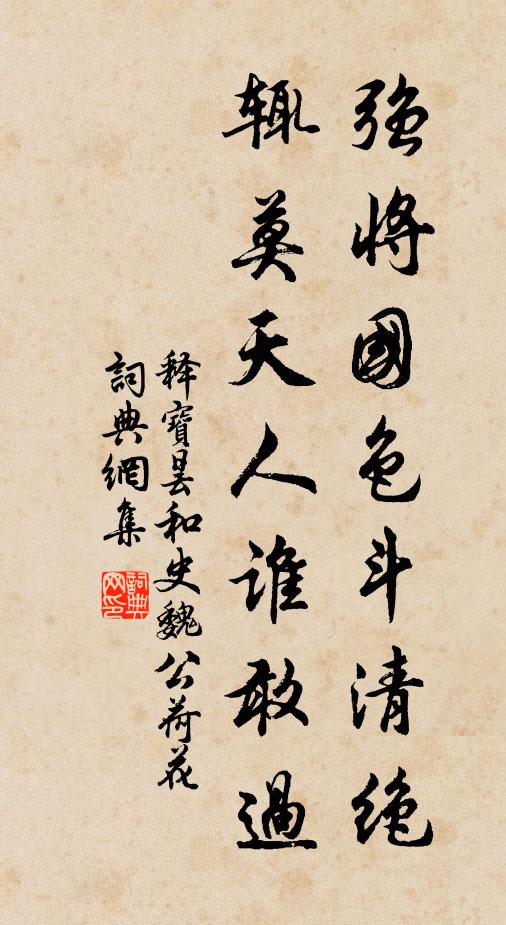 強將國色斗清絶
輒莫天人誰敢過
释寶曇和史魏公荷花
詞典網集
詞典
网印